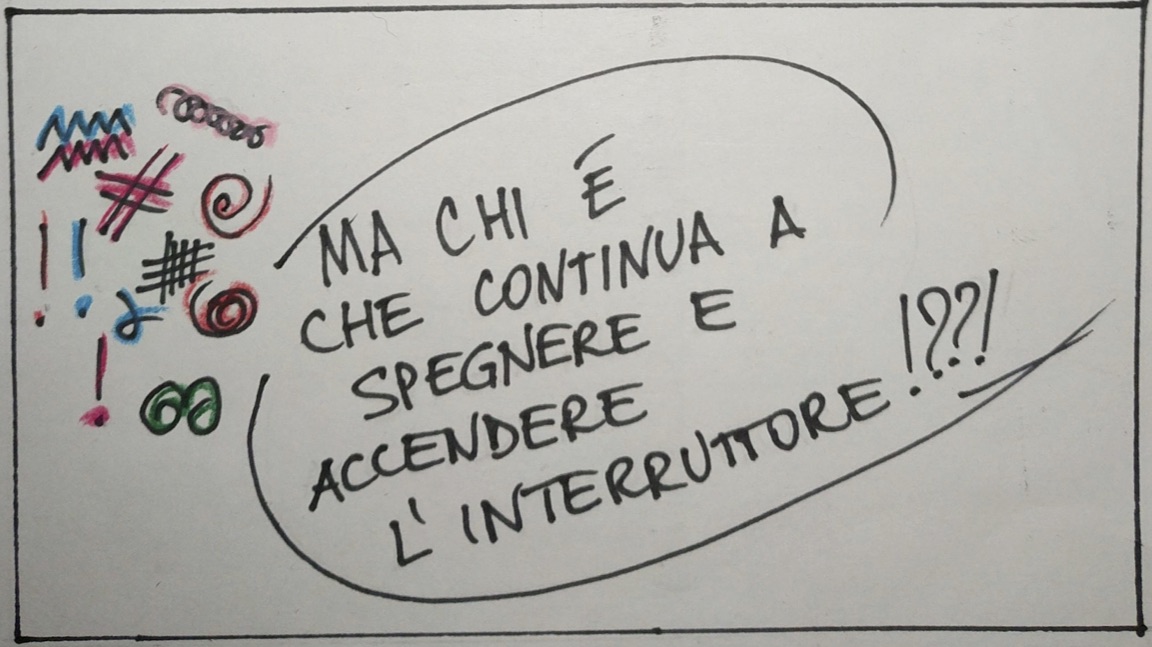 MA CHI É
CHE CONTINUA A
SPEGNERE E
ACCENDERE
L'INTERRUTTORE!??!